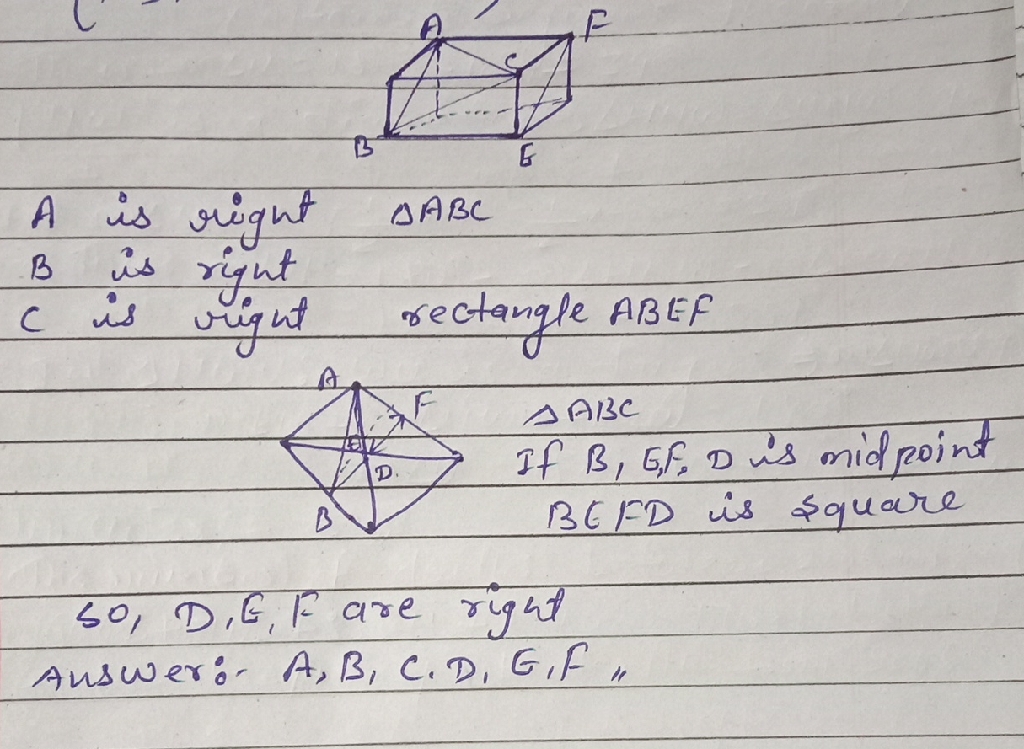 A F
C
B E
A is right △ABC
B is right
C is right rectangle ABEF
A
F △ABC
E If B, E,F, D is midpoint
D.
B BEFD is square
so, D,E, F are right
Answer:- A, B, C. D, E,F „